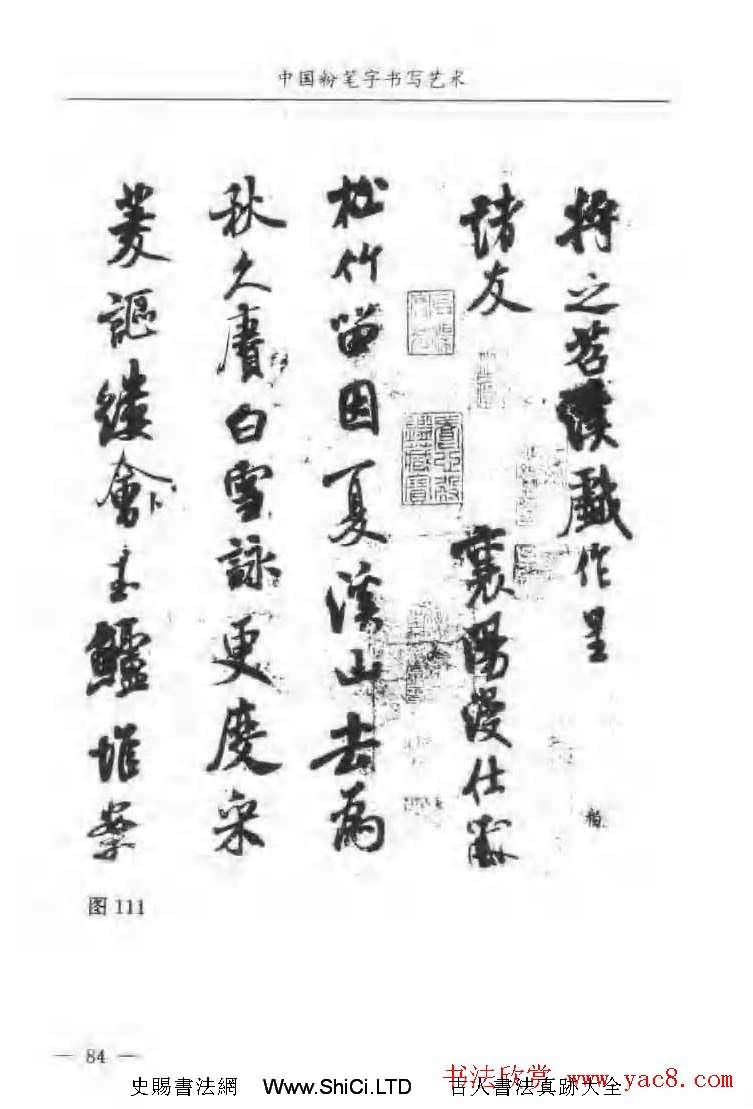 中国粉笔字书写艺术
将之苕溪戲作呈
諸友
襄陽漫仕黻
松竹留因夏溪山去為
秋久賡白雪詠更度采
菱謳縷會玉鱸堆案
图 111
— 84 —
史賜書法網 Www.ShiCi.LTD 古人書法真跡大全
书法欣赏 www.yac8.com